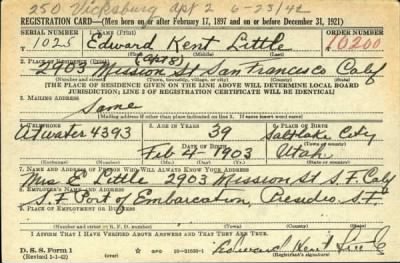 250 Vicksburg Apt 2 6-23/42
REGISTRATION CARD—(Men born on or after February 17, 1897 and on or before December 31, 1921)
SERIAL NUMBER 1. NAME (Print) ORDER NUMBER
1025 Edward Kent Little 10200
(First) (Middle) (Last)
2. PLACE OF RESIDENCE (Print) (Apt 8)
2903 Mission St San Francisco Calif
(Number and street) (Town, township, village, or city) (County) (State)
[THE PLACE OF RESIDENCE GIVEN ON THE LINE ABOVE WILL DETERMINE LOCAL BOARD
JURISDICTION; LINE 2 OF REGISTRATION CERTIFICATE WILL BE IDENTICAL]
3. MAILING ADDRESS
Same
[Mailing address if other than place indicated on line 2. If same insert word same]
4. TELEPHONE 5. AGE IN YEARS 6. PLACE OF BIRTH
Atwater 4393 39 Saltlake City
DATE OF BIRTH (Town or county)
Feb 4-1903 Utah
(Exchange) (Number) (Mo.) (Day) (Yr.) (State or country)
7. NAME AND ADDRESS OF PERSON WHO WILL ALWAYS KNOW YOUR ADDRESS
Mrs E. Little 2903 Mission St S.F. Calif
8. EMPLOYER'S NAME AND ADDRESS
S.F. Port of Embarcation, Presidio S.F.
9. PLACE OF EMPLOYMENT OR BUSINESS
(Number and street or R. F. D. number) (Town) (County) (State)
I AFFIRM THAT I HAVE VERIFIED ABOVE ANSWERS AND THAT THEY ARE TRUE.
D. S. S. Form 1
(Revised 1-1-42) (over) GPO 16-21630-1 Edward Kent Little